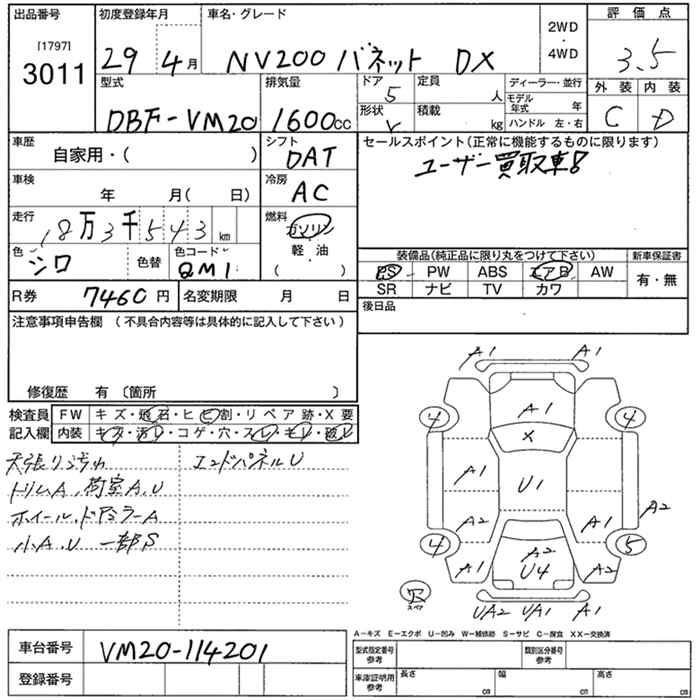 出品番号
[1797]
3011
初度登録年月
29 4月
車名・グレード
NV200 バネット DX
2WD
・
4WD
評価点
3.5
外装 内装
C D
型式
DBF-VM20
排気量
1600cc
ドア
5
定員
人
形状
V
積載
kg
ディーラー・並行
モデル年式 年
ハンドル 左・右
車歴
自家用・( )
シフト
DAT
セールスポイント(正常に機能するものに限ります)
ユーザー買取車!!
車検
年 月( 日)
冷房
AC
走行
18万3千543km
燃料
ガソリン
・
軽油
・
( )
色
シロ
色替
色コード
QM1
装備品(純正品に限り丸をつけて下さい)
新車保証書
PS PW ABS エアB AW
SR ナビ TV カワ
有・無
R券 7460円
名変期限 月 日
後日品
注意事項申告欄 (不具合内容等は具体的に記入して下さい)
修復歴 有 〔箇所 〕
検査員記入欄
FW キズ・飛石・ヒビ割・リペア跡・X要
内装 キズ・汚レ・コゲ・穴・スレ・キレ・破レ
エンドパネルU
トリムA、荷室A、U
ホイール、ドアミラーA
小A、U 一部S
A1 A1
4 A1 4
X
A1 U1 A2
A2 A1
4 A2 5
A1 U4 A2
穴
スペア
UA2 UA1 A1
A-キズ E-エクボ U-凹み W-補修跡 S-サビ C-腐食 XX-交換済
車台番号 VM20-114201
登録番号
型式指定番号
参考
類別区分番号
参考
車庫証明用
参考
長さ cm
幅 cm
高さ cm